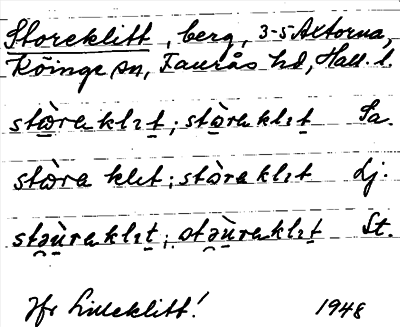 Storeklitt, berg, 3-5 Altorna,
Köinge sn, Faurås hd, Hall. l.
stæ̀raklɪt; stàraklɪt Sa.
stæ̀ra klɪt; stàraklɪt Lj.
stəu̇̀raklɪt; stəu̇̀raklɪt St.
Jfr Lilleklitt! 1948